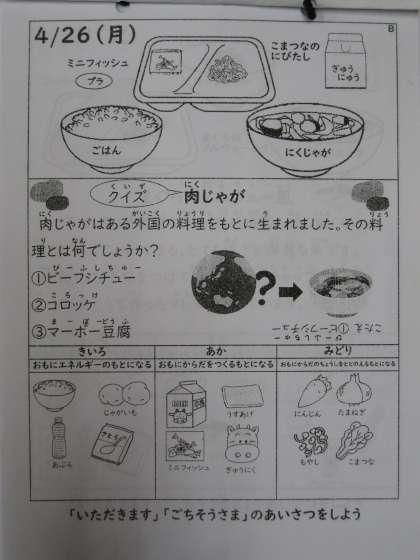 4/26(月)
8
ミニフィッシュ
プラ
こまつなの
にびたし
ぎゅう
にゅう
ごはん
にくじゃが
クイズ
肉じゃが
肉じゃがはある外国の料理をもとに生まれました。その料
理とは何でしょうか?
①ビーフシチュー
②コロッケ
③マーボー豆腐
?
こたえ
①ビーフシチュー
きいろ
おもにエネルギーのもとになる
じゃがいも
あぶら
さとう
あか
おもにからだをつくるもとになる
うすあげ
ミニフィッシュ
ぎゅうにく
みどり
おもにからだのちょうしをととのえるもとになる
にんじん
たまねぎ
もやし
こまつな
「いただきます」「ごちそうさま」のあいさつをしよう